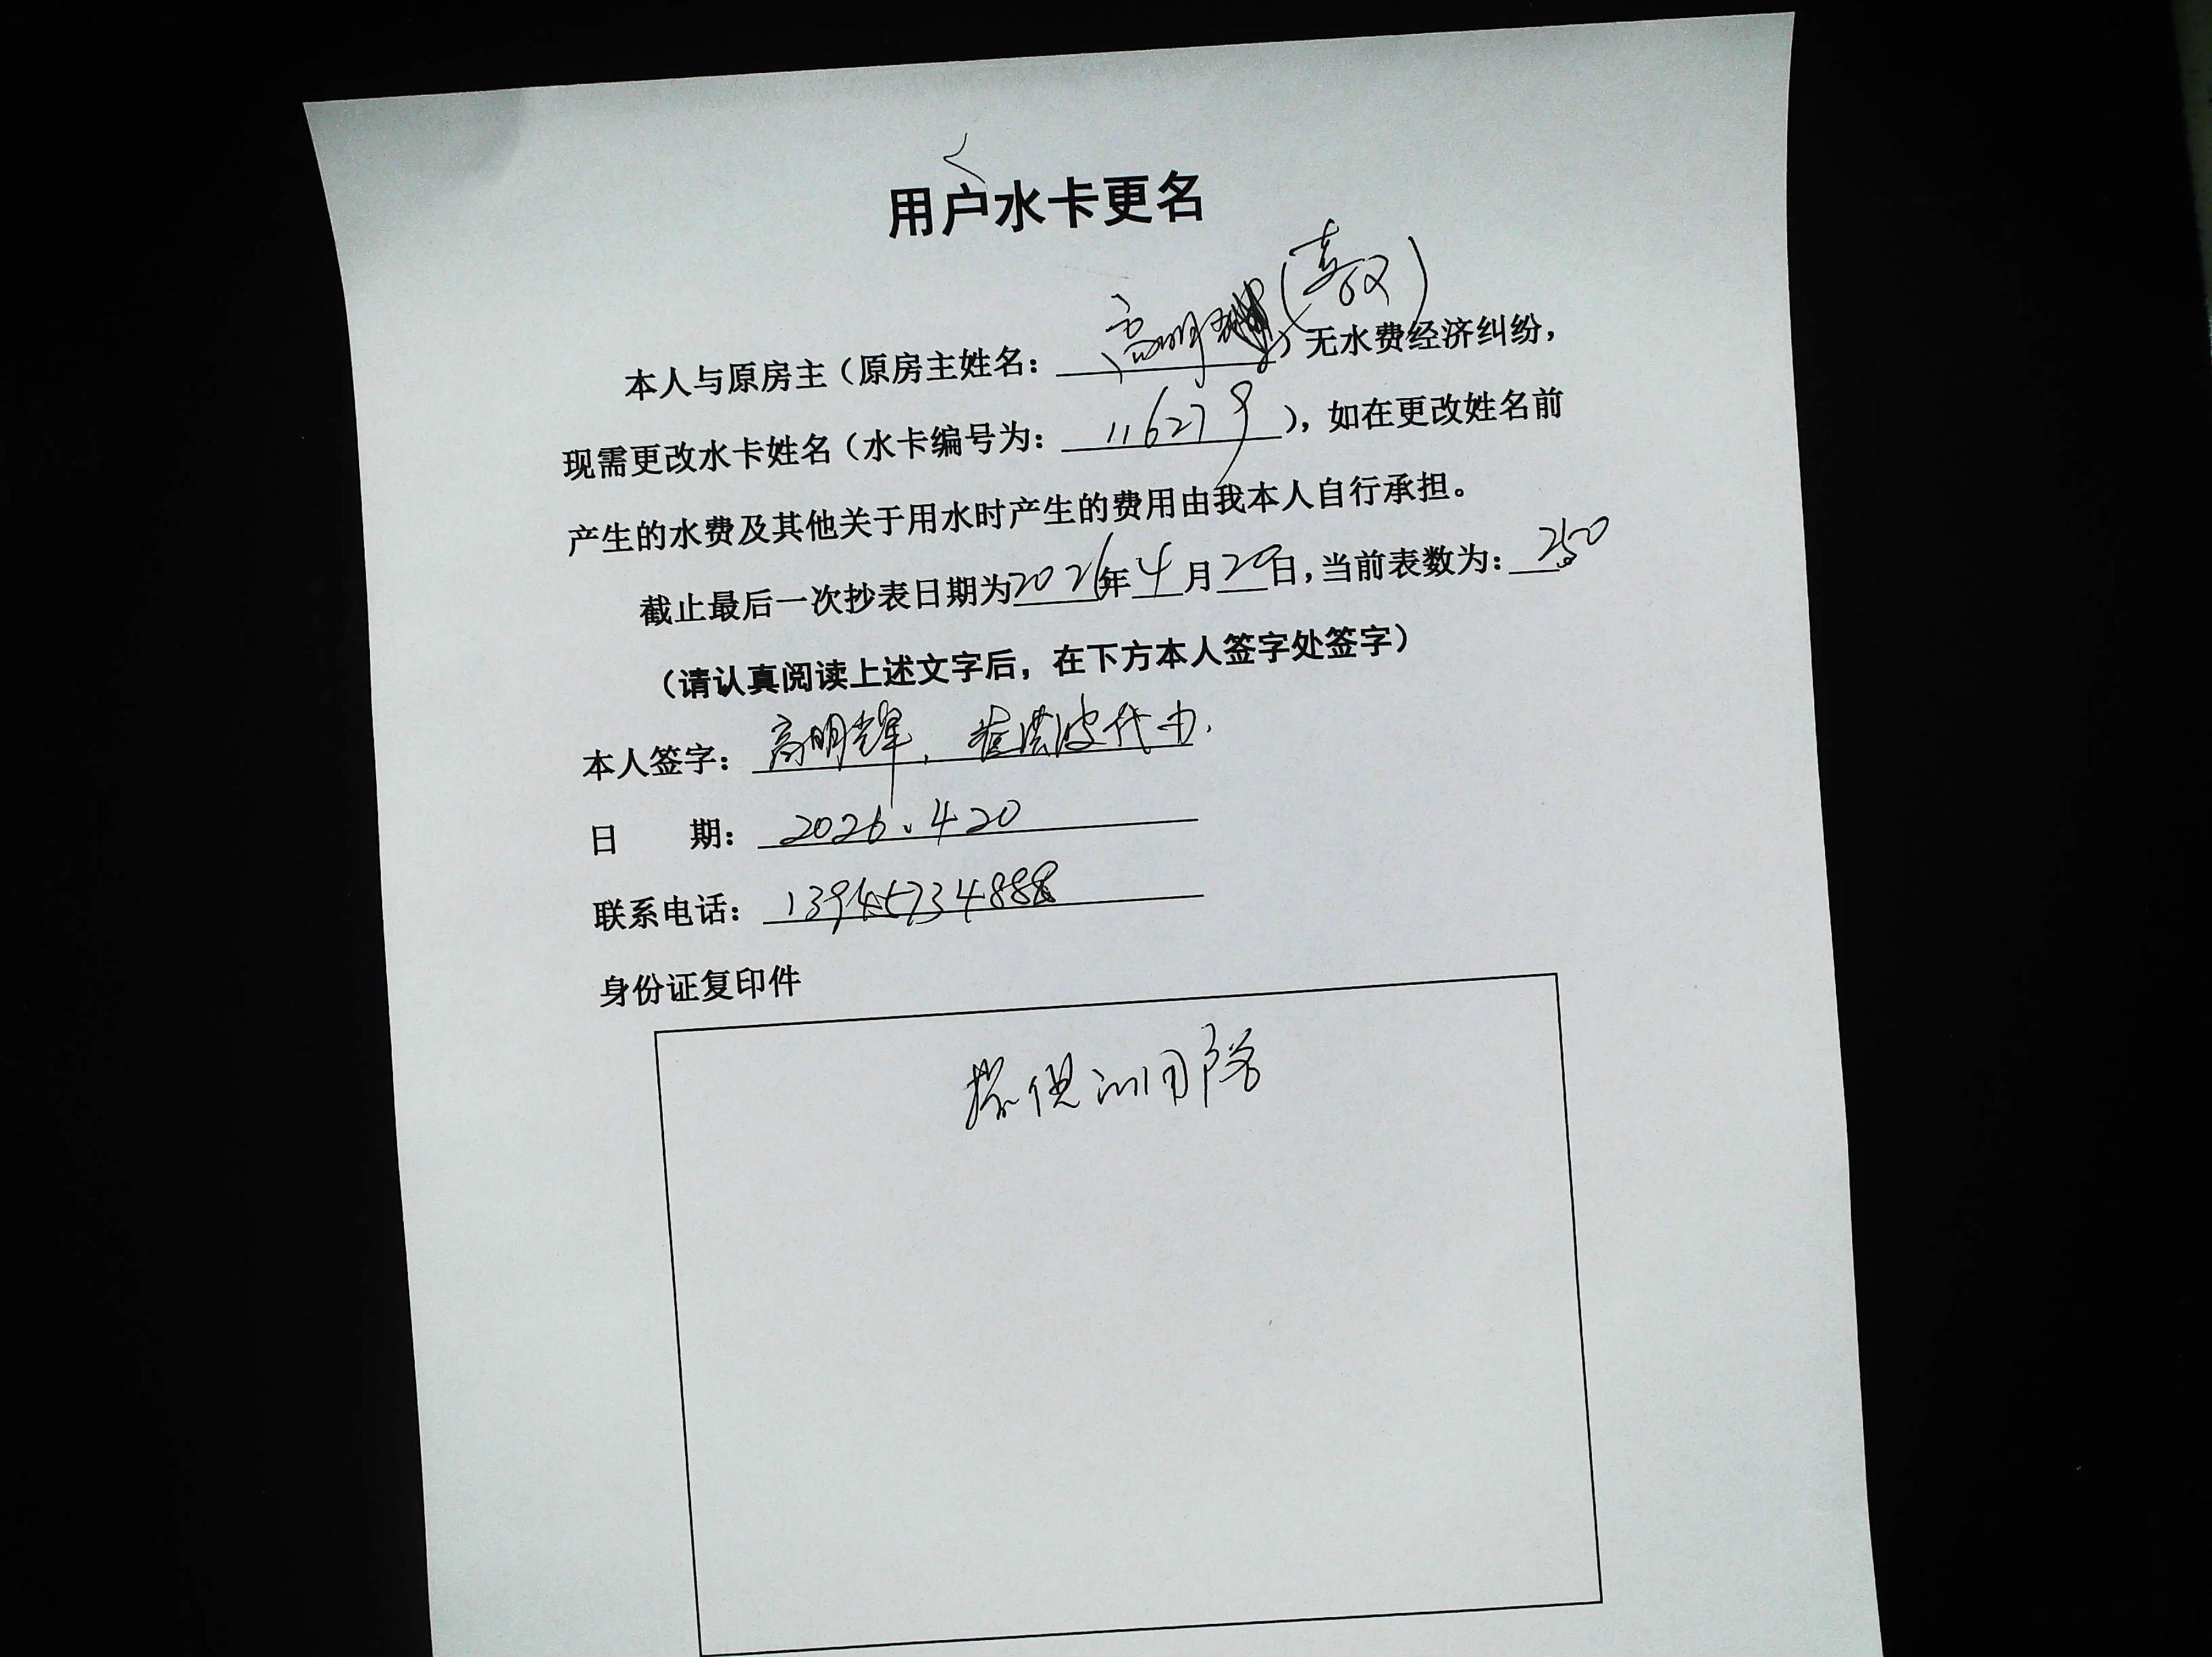 用户水卡更名
本人与原房主（原房主姓名：高明）无水费经济纠纷，
现需更改水卡姓名（水卡编号为：116279），如在更改姓名前
产生的水费及其他关于用水时产生的费用由我本人自行承担。
截止最后一次抄表日期为2026年4月20日，当前表数为：250
（请认真阅读上述文字后，在下方本人签字处签字）
本人签字：高明辉，波代办.
日 期：2026.4 20
联系电话：13945734888
身份证复印件